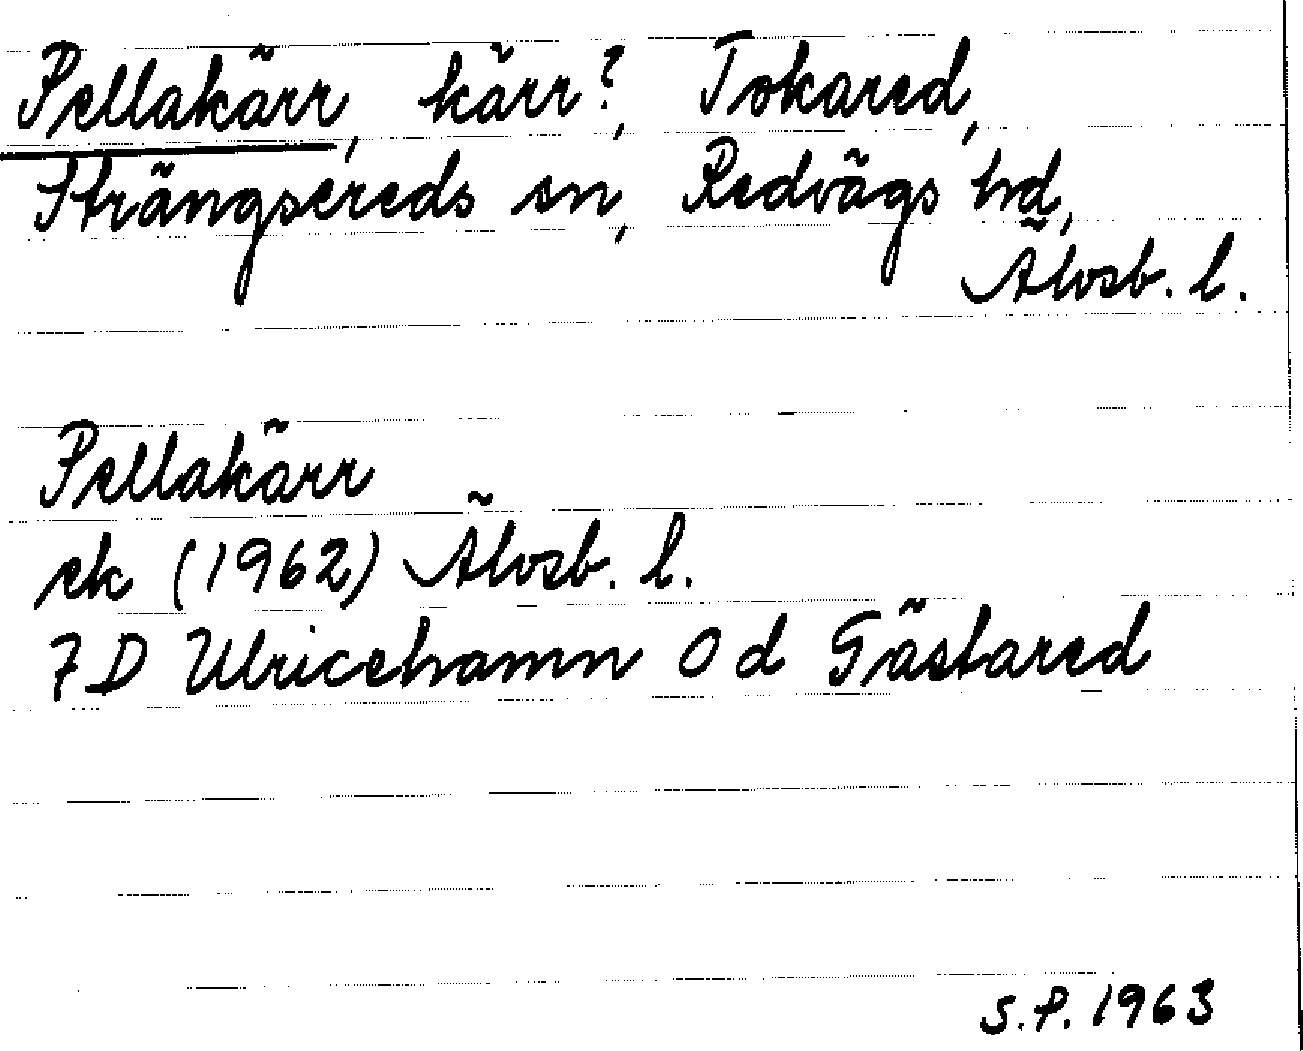 Pellakärr, kärr?, Tokared,
Strängsereds sn, Redvägs hd,
Älvsb. l.
Pellakärr
ek (1962) Älvsb. l.
7D Ulricehamn 0 d Gästared
S.P. 1963